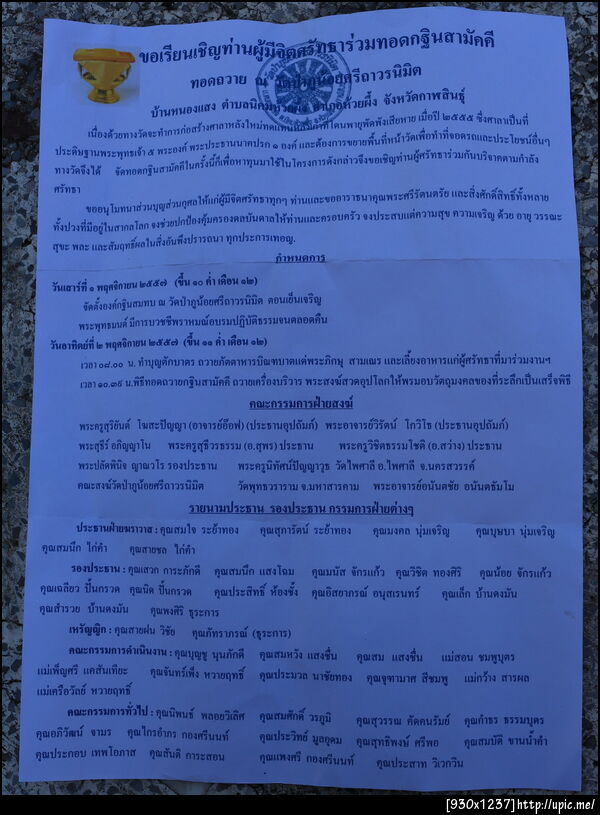 ขอเรียนเชิญท่านผู้มีจิตศรัทธาร่วมทอดกฐินสามัคคี
ทอดถวาย ณ วัดป่าภูน้อยศรีถาวรนิมิต
บ้านหนองแสง ตำบลนิคมห้วยผึ้ง อำเภอห้วยผึ้ง จังหวัดกาฬสินธุ์
เนื่องด้วยทางวัดจะทำการก่อสร้างศาลาหลังใหม่ทดแทนหลังเก่าที่โดนพายุพัดพังเสียหาย เมื่อปี ๒๕๕๕ ซึ่งศาลาเป็นที่
ประดิษฐานพระพุทธเจ้า ๕ พระองค์ พระประธานนาคปรก ๑ องค์ และต้องการขยายพื้นที่หน้าวัดเพื่อทำที่จอดรถและประโยชน์อื่นๆ
ทางวัดจึงได้ จัดทอดกฐินสามัคคีในครั้งนี้ก็เพื่อหาทุนมาใช้ในโครงการดังกล่าวจึงขอเชิญท่านผู้ศรัทธาร่วมกันบริจาคตามกำลัง
ศรัทธา
ขออนุโมทนาส่วนบุญส่วนกุศลให้แก่ผู้มีจิตศรัทธาทุกๆ ท่านและขออาราธนาคุณพระศรีรัตนตรัย และสิ่งศักดิ์สิทธิ์ทั้งหลาย
ทั้งปวงที่มีอยู่ในสากลโลก จงช่วยปกป้องคุ้มครองดลบันดาลให้ท่านและครอบครัว จงประสบแต่ความสุข ความเจริญ ด้วย อายุ วรรณะ
สุขะ พละ และสัมฤทธิ์ผลในสิ่งอันพึงปรารถนา ทุกประการเทอญ.
กำหนดการ
วันเสาร์ที่ ๑ พฤศจิกายน ๒๕๕๗ (ขึ้น ๑๐ ค่ำ เดือน ๑๒)
จัดตั้งองค์กฐินสมทบ ณ วัดป่าภูน้อยศรีถาวรนิมิต ตอนเย็นเจริญ
พระพุทธมนต์ มีการบวชชีพราหมณ์อบรมปฏิบัติธรรมจนตลอดคืน
วันอาทิตย์ที่ ๒ พฤศจิกายน ๒๕๕๗ (ขึ้น ๑๑ ค่ำ เดือน ๑๒)
เวลา ๐๘.๐๐ น. ทำบุญตักบาตร ถวายภัตตาหารบิณฑบาตแด่พระภิกษุ สามเณร และเลี้ยงอาหารแก่ผู้ศรัทธาที่มาร่วมงานฯ
เวลา ๑๐.๓๙ น.พิธีทอดถวายกฐินสามัคคี ถวายเครื่องบริวาร พระสงฆ์สวดอุปโลกให้พรมอบวัตถุมงคลของที่ระลึกเป็นเสร็จพิธี
คณะกรรมการฝ่ายสงฆ์
พระครูสุริยันต์ โฆสะปัญญา (อาจารย์อ๊อฟ) (ประธานอุปถัมภ์) พระอาจารย์วิรัตน์ โกวิโท (ประธานอุปถัมภ์)
พระสุธีร์ อภิญญาโน พระครูสุธีวรธรรม (อ.สุพร) ประธาน พระครูวิชิตธรรมโชติ (อ.สว่าง) ประธาน
พระปลัดพินิจ ญาณวโร รองประธาน พระครูนิทัศน์ปัญญาวุธ วัดไพศาลี อ.ไพศาลี จ.นครสวรรค์
คณะสงฆ์วัดป่าภูน้อยศรีถาวรนิมิต วัดพุทธวราราม จ.มหาสารคาม พระอาจารย์อนันตชัย อนันตธัมโม
รายนามประธาน รองประธาน กรรมการฝ่ายต่างๆ
ประธานฝ่ายฆราวาส : คุณสมใจ ระย้าทอง คุณสุภารัตน์ ระย้าทอง คุณมงคล นุ่มเจริญ คุณบุษบา นุ่มเจริญ
คุณสมนึก ไก่คำ คุณสายชล ไก่คำ
รองประธาน : คุณเสวก การะภักดี คุณสมนึก แสงโฉม คุณมนัส จักรแก้ว คุณวิชิต ทองศิริ คุณน้อย จักรแก้ว
คุณเฉลียว ปิ้นกรวด คุณนิด ปิ้นกรวด คุณประสิทธิ์ ห้องซั้ง คุณอิสยาภรณ์ อนุสเรนทร์ คุณเล็ก บ้านดงมัน
คุณสำรวย บ้านดงมัน คุณพงศิริ ธุระการ
เหรัญญิก : คุณสายฝน วิชัย คุณภัทราภรณ์ (ธุระการ)
คณะกรรมการดำเนินงาน : คุณบุญชู นุนภักดี คุณสมหวัง แสงชื่น คุณสม แสงชื่น แม่สอน ชมพูบุตร
แม่เพ็ญศรี แคสันเทียะ คุณจันทร์เพ็ง หวายฤทธิ์ คุณประมวล นาชัยทอง คุณจุฑามาศ สีชมพู แม่กว้าง สารผล
แม่เครือวัลย์ หวายฤทธิ์
คณะกรรมการทั่วไป : คุณนิพนธ์ พลอยวิเลิศ คุณสมศักดิ์ วรภูมิ คุณสุวรรณ คัดคนรัมย์ คุณกำธร ธรรมบุตร
คุณอภิวัฒน์ จามร คุณไกรอำภร กองศรีนนท์ คุณประวิทย์ มูลอุดม คุณสุทธิพงษ์ ศรีพอ คุณสมบัติ ขานน้ำคำ
คุณประกอบ เทพโอภาส คุณสันติ การะสอน คุณแพงศรี กองศรีนนท์ คุณประสาท วิเวกวิน
[930x1237]http://upic.me/